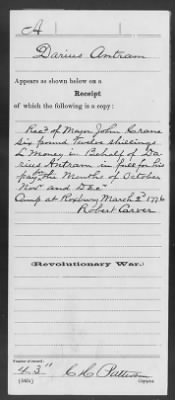 A
Darius Antram
Appears as shown below on a
Receipt
of which the following is a copy:
Recd of Major John Crane
six pound twelve shillings
L Money in Behalf of Da-
rius Antram in full for his
pay the Months of October
Novr and Decr
Camp at Roxbury March 2d 1776
Robert Carver
(Revolutionary War.)
Number of record:
43
Copyist.